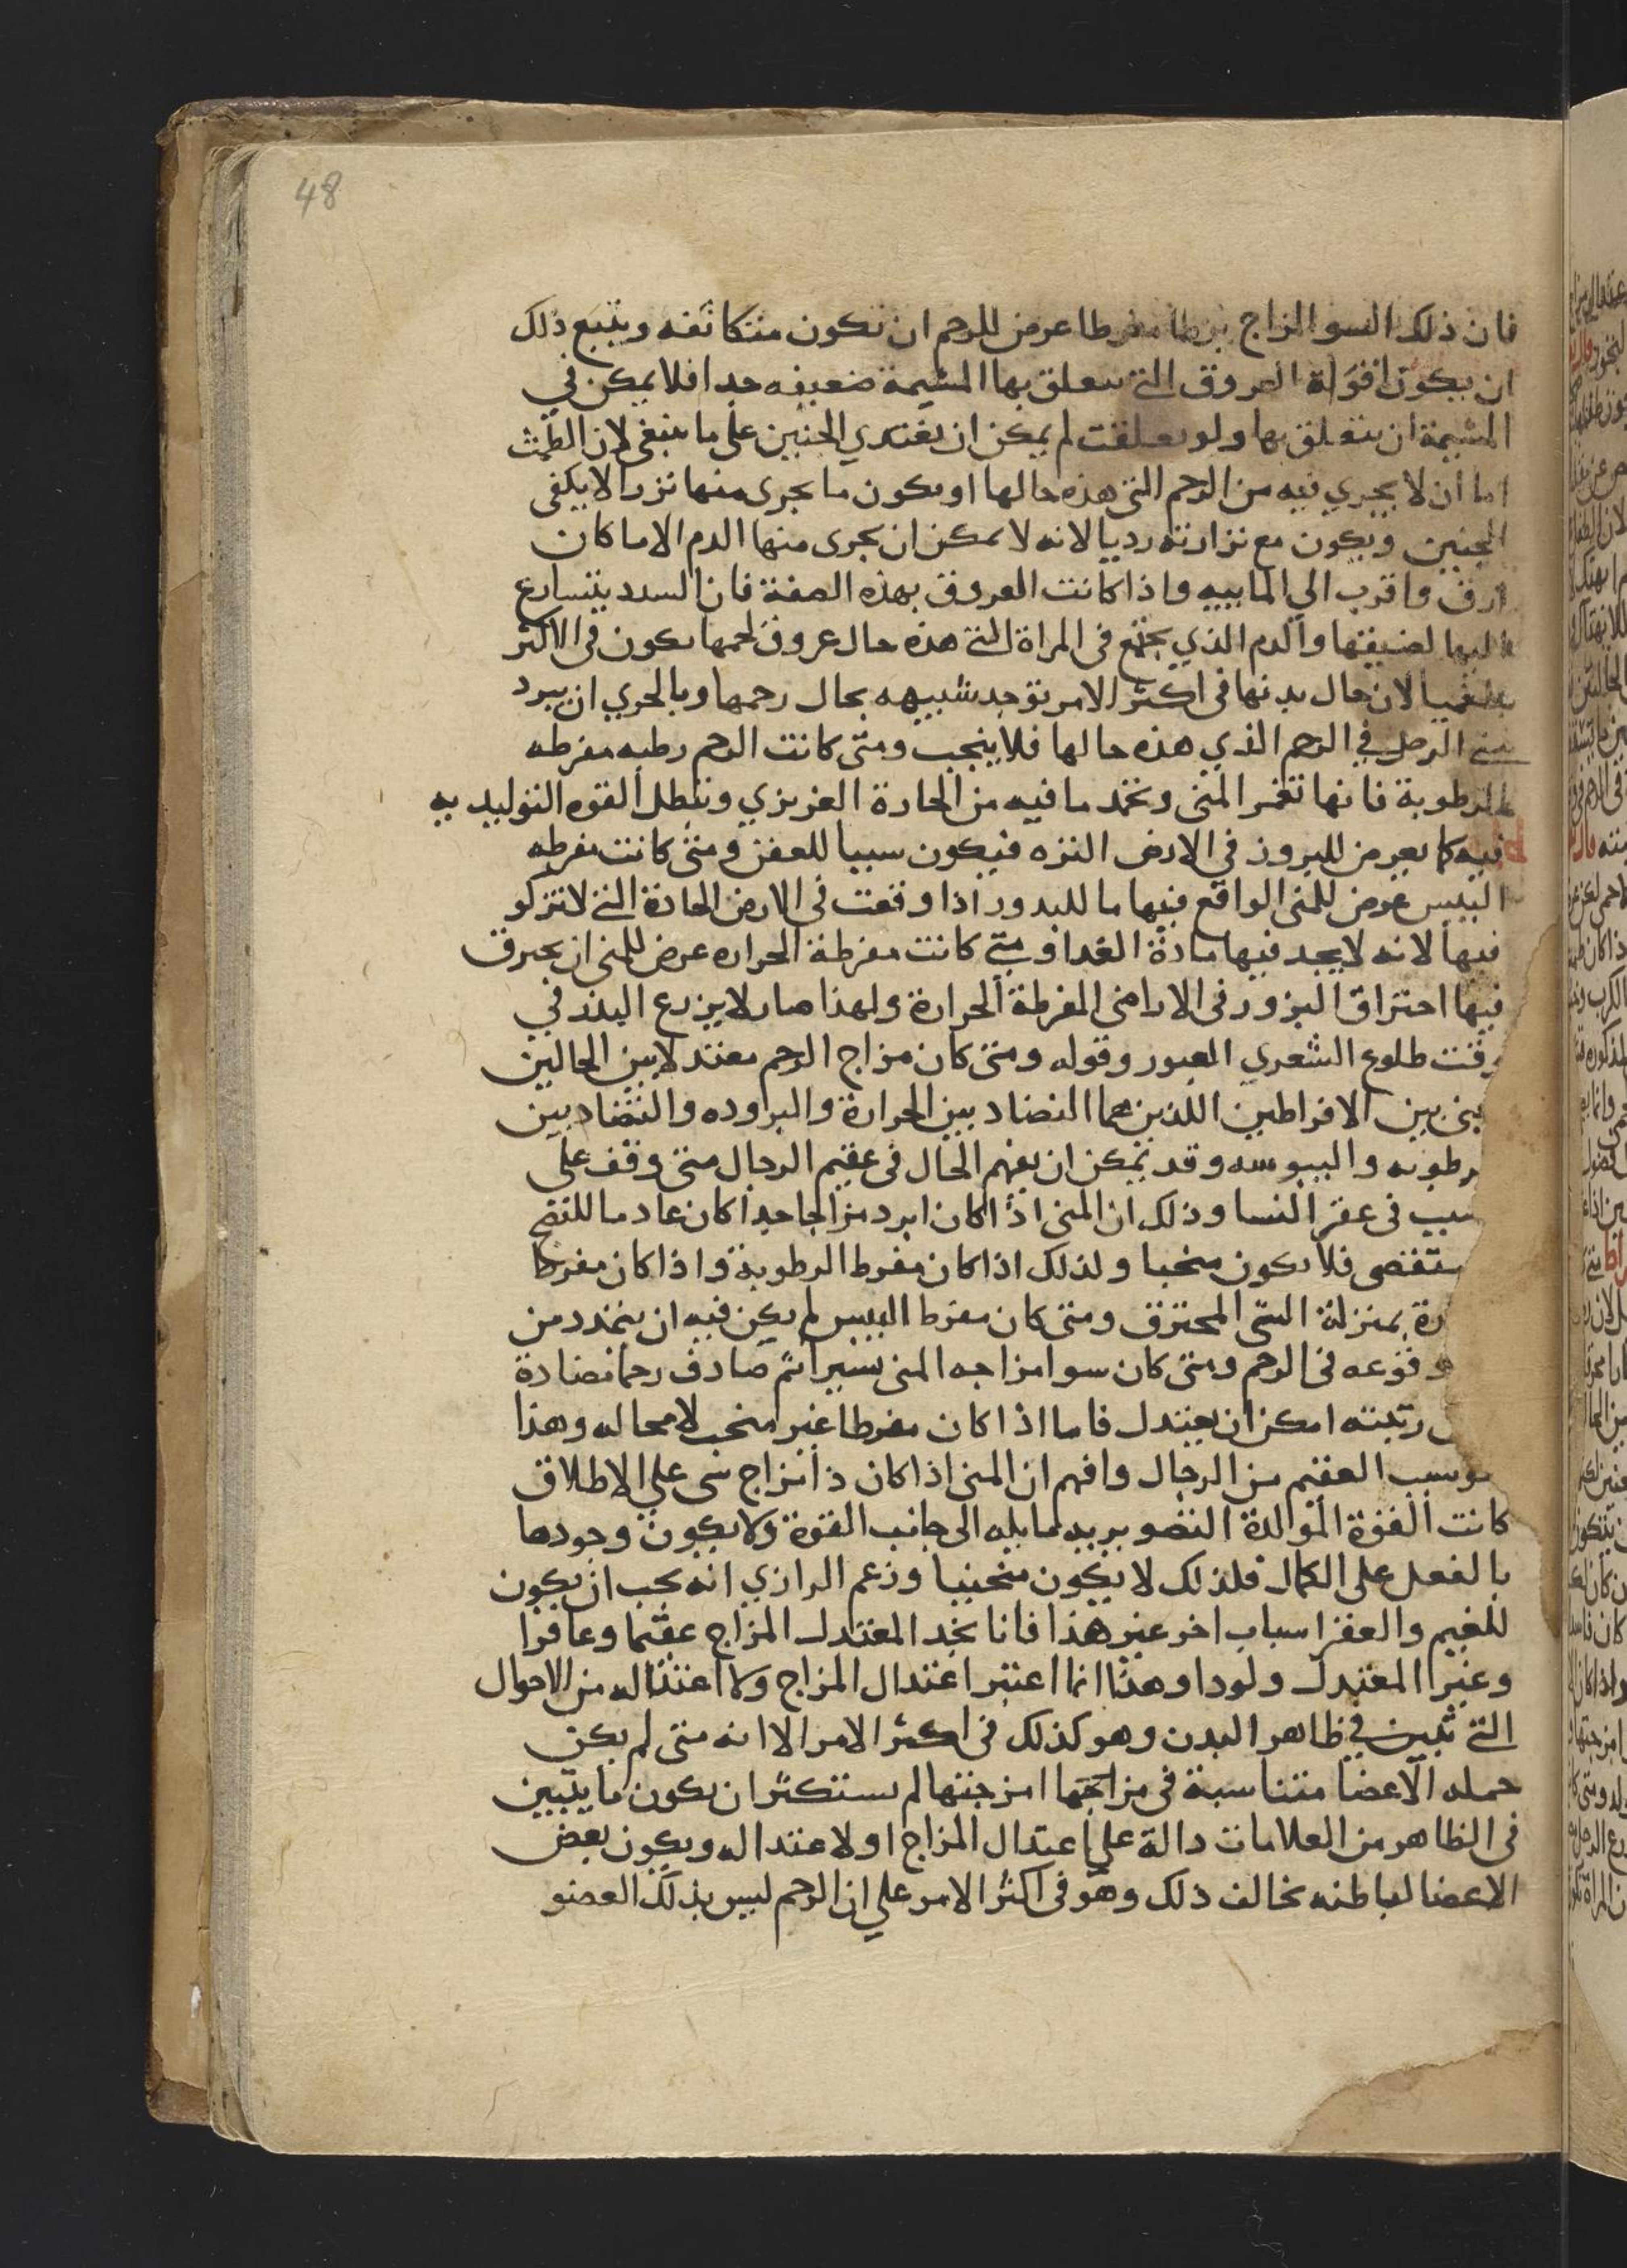 48
فان ذلك السو المزاج مفرطا عرض للرحم ان تكون متكاثفه ويتبع ذلك
ان يكون افواه العروق التى تتعلق بها المشيمة ضعيفه جدا فلا يمكن في
المشيمة ان يتعلق بها ولو تعلقت لم يمكن ان يغتدي الجنين على ما ينبغى لان الطمث
اما ان لا يجري فيه من الرحم التى هذه حالها او يكون ما يجرى منها نزرا لا يكفى
الجنين ويكون مع نزارته رديا لانه لا يمكن ان يجرى منها الدم الا ما كان
ارق واقرب الي المابيه واذا كانت العروق بهذه الصفة فان السدد يتسارع
اليها لضيقها والدم الذي يجتمع فى المراة التى هذه حال عروق لحمها يكون فى الاكثر
بلغميا لان حال بدنها فى اكثر الامر توجد شبيهه بحال رحمها وبالحري ان يبرد
منى الرجل في الرحم الذي هذه حالها فلا ينجب ومتى كانت الرحم رطبه مفرطه
الرطوبة فانها تغمر المنى وتخمد ما فيه من الحارة الغريزي وتبطل القوه التوليديه
فيه كما يعرض للبروز في الارض النزه فيكون سببا للعفن ومتى كانت مفرطه
اليبس عرض للمنى الواقع فيها ما للبدور اذا وقعت فى الارض الحادة التى لا تزكو
فيها لانه لا يجد فيها مادة الغدا ومتى كانت مفرطة الحراره عرض للمنى ان يحترق
فيها احتراق البزور فى الاراضى المفرطة الحرارة ولهذا صار لا يزرع البذر في
وقت طلوع الشعري العبور وقوله ومتى كان مزاج الرحم معتدلا بين الحالين
بين الافراطين اللذين هما التضاد بين الحرارة والبروده والتضاد بين
رطوبه واليبوسه وقد يمكن ان يفهم الحال فى عقيم الرجال متى وقف على
سبب فى عقر النسا وذلك ان المنى اذا كان ابرد مزاجا جدا كان عادما للنضج
ستقصى فلا يكون منجبا ولذلك اذا كان مفرط الرطوبة واذا كان مفرط
رة بمنزلة الشى المحترق ومتى كان مفرط اليبس لم يكن فيه ان يتمدد من
وقوعه فى الرحم ومتى كان سوا مزاجه المنى يسيرا ثم صادف رحما مضادة
رتبته امكن ان يعتدل فاما اذا كان مفرطا غير منجب لا محاله وهذا
سبب العقيم من الرجال وافهم ان المنى اذا كان ذا مزاج شى علي الاطلاق
كانت القوة الموالدة التصو يريد لما يله الى جانب القوة ولا يكون وجودها
بالفعل على الكمال فلذلك لا يكون منجبيا وزعم الرازي انه يجب ان يكون
للغيم والعقر اسباب اخر غير هذا فانا نجد المعتدل المزاج عقيما وعاقرا
وغير المعتدل ولودا وهذا انما اعتبر اعتدال المزاج ولا اعتداله من الاحوال
التى تبين في ظاهر البدن وهو كذلك فى اكثر الامر الا انه متى لم يكن
جمله الاعضا متناسبة فى مزاجها امزجتها لم يستكثر ان يكون ما يتبين
فى الظاهر من العلامات دالة علي اعتدال المزاج او لا عتداله ويكون بعض
الاعضا لباطنه يخالف ذلك وهو فى اكثر الامر علي ان الرحم ليس بذلك العضو